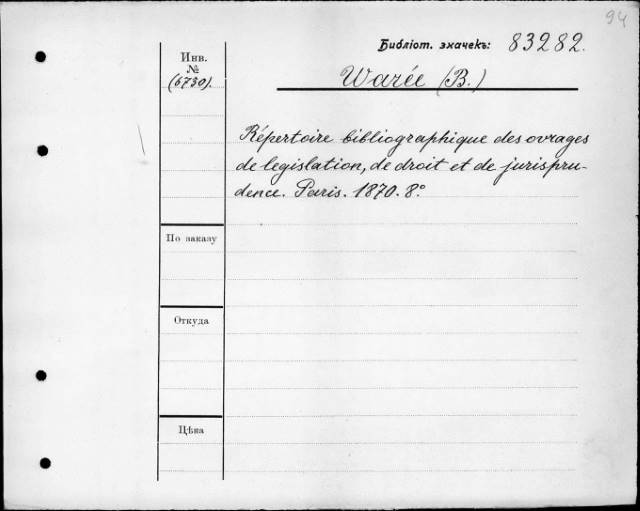 94
Библіот. значекъ: 83282.
Инв.
№
(6730).
Warée (B.)
Répertoire bibliographique des ovrages
de legislation, de droit et de jurispru-
dence. Paris. 1870. 8º
По заказу
Откуда
Цѣна